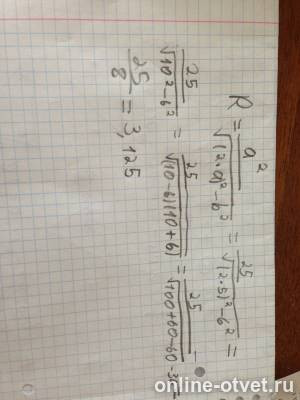 R = a² / √((2·a)² - b²) = 25 / √((2·5)² - 6²) =
25 / √(10² - 6²) = 25 / √((10-6)(10+6)) = 25 / √(100+60-60-3
25 / 8 = 3,125
online-otvet.ru